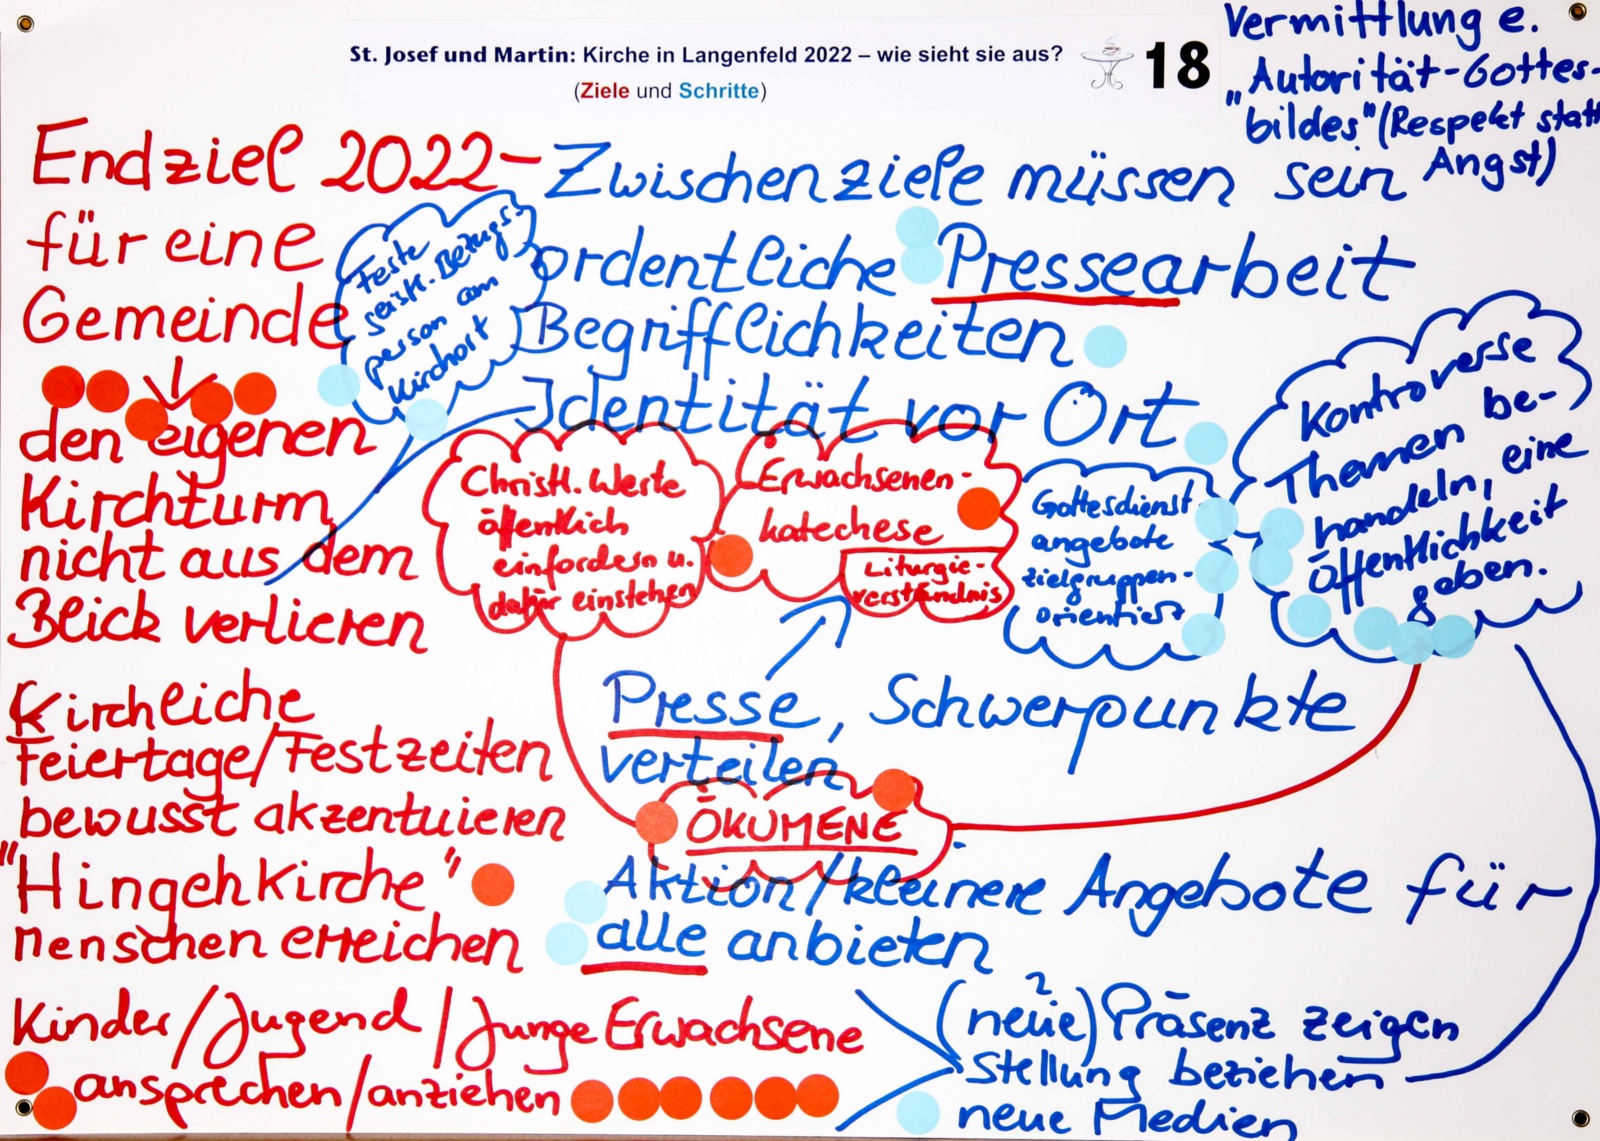 St. Josef und Martin: Kirche in Langenfeld 2022 – wie sieht sie aus?
(Ziele und Schritte)
18
Vermittlung e.
"Autorität-Gottes-
bildes" (Respekt statt
Angst)
Endziel 2022-
für eine
Gemeinde
den eigenen
Kirchturm
nicht aus dem
Blick verlieren
Kirchliche
Feiertage/Festzeiten
bewusst akzentuieren
"Hingehkirche"
Menschen erreichen
Kinder/Jugend/junge Erwachsene
ansprechen/anziehen
Zwischenziele müssen sein
ordentliche Pressearbeit
Begrifflichkeiten
Identität vor Ort
Feste
geistl. Bezugs-
person am
Kirchort
Christl. Werte
öffentlich
einfordern u.
dafür einstehen
Erwachsenen-
katechese
Liturgie-
verständnis
Gottesdienst
angebote
zielgruppen-
orientiert
Kontroverse
Themen be-
handeln, eine
Öffentlichkeit
geben.
Presse, Schwerpunkte
verteilen
ÖKUMENE
Aktion/kleinere Angebote für
alle anbieten
(neue) Präsenz zeigen
Stellung beziehen
neue Medien